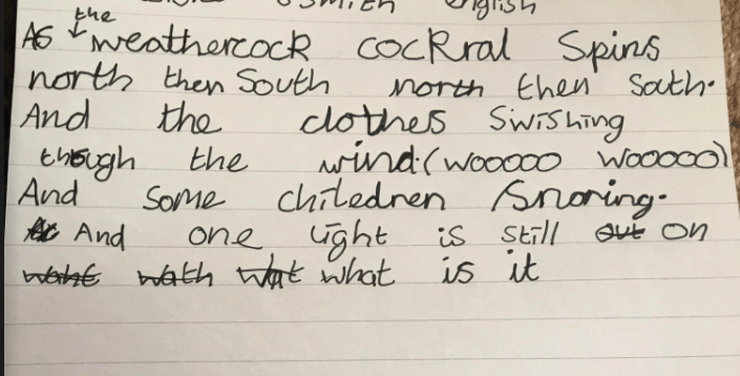 Smith English
the
As weathercock cockral Spins
north then South north then South.
And the clothes Swishing
though the wind.(wooooo wooooo)
And some chiledren snoring.
And one light is still out on
waht wath wat what is it